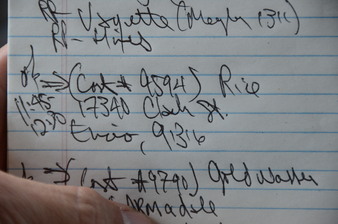 RR- Vignette (Mayhr 1311)
RR- Hives
ok ⇒ (Cont # 9594) Rice
11:45 17340 Clark St.
12:30 Encino, 91316
ok ⇒ (Cont #9790) Goldwasser
Armadale